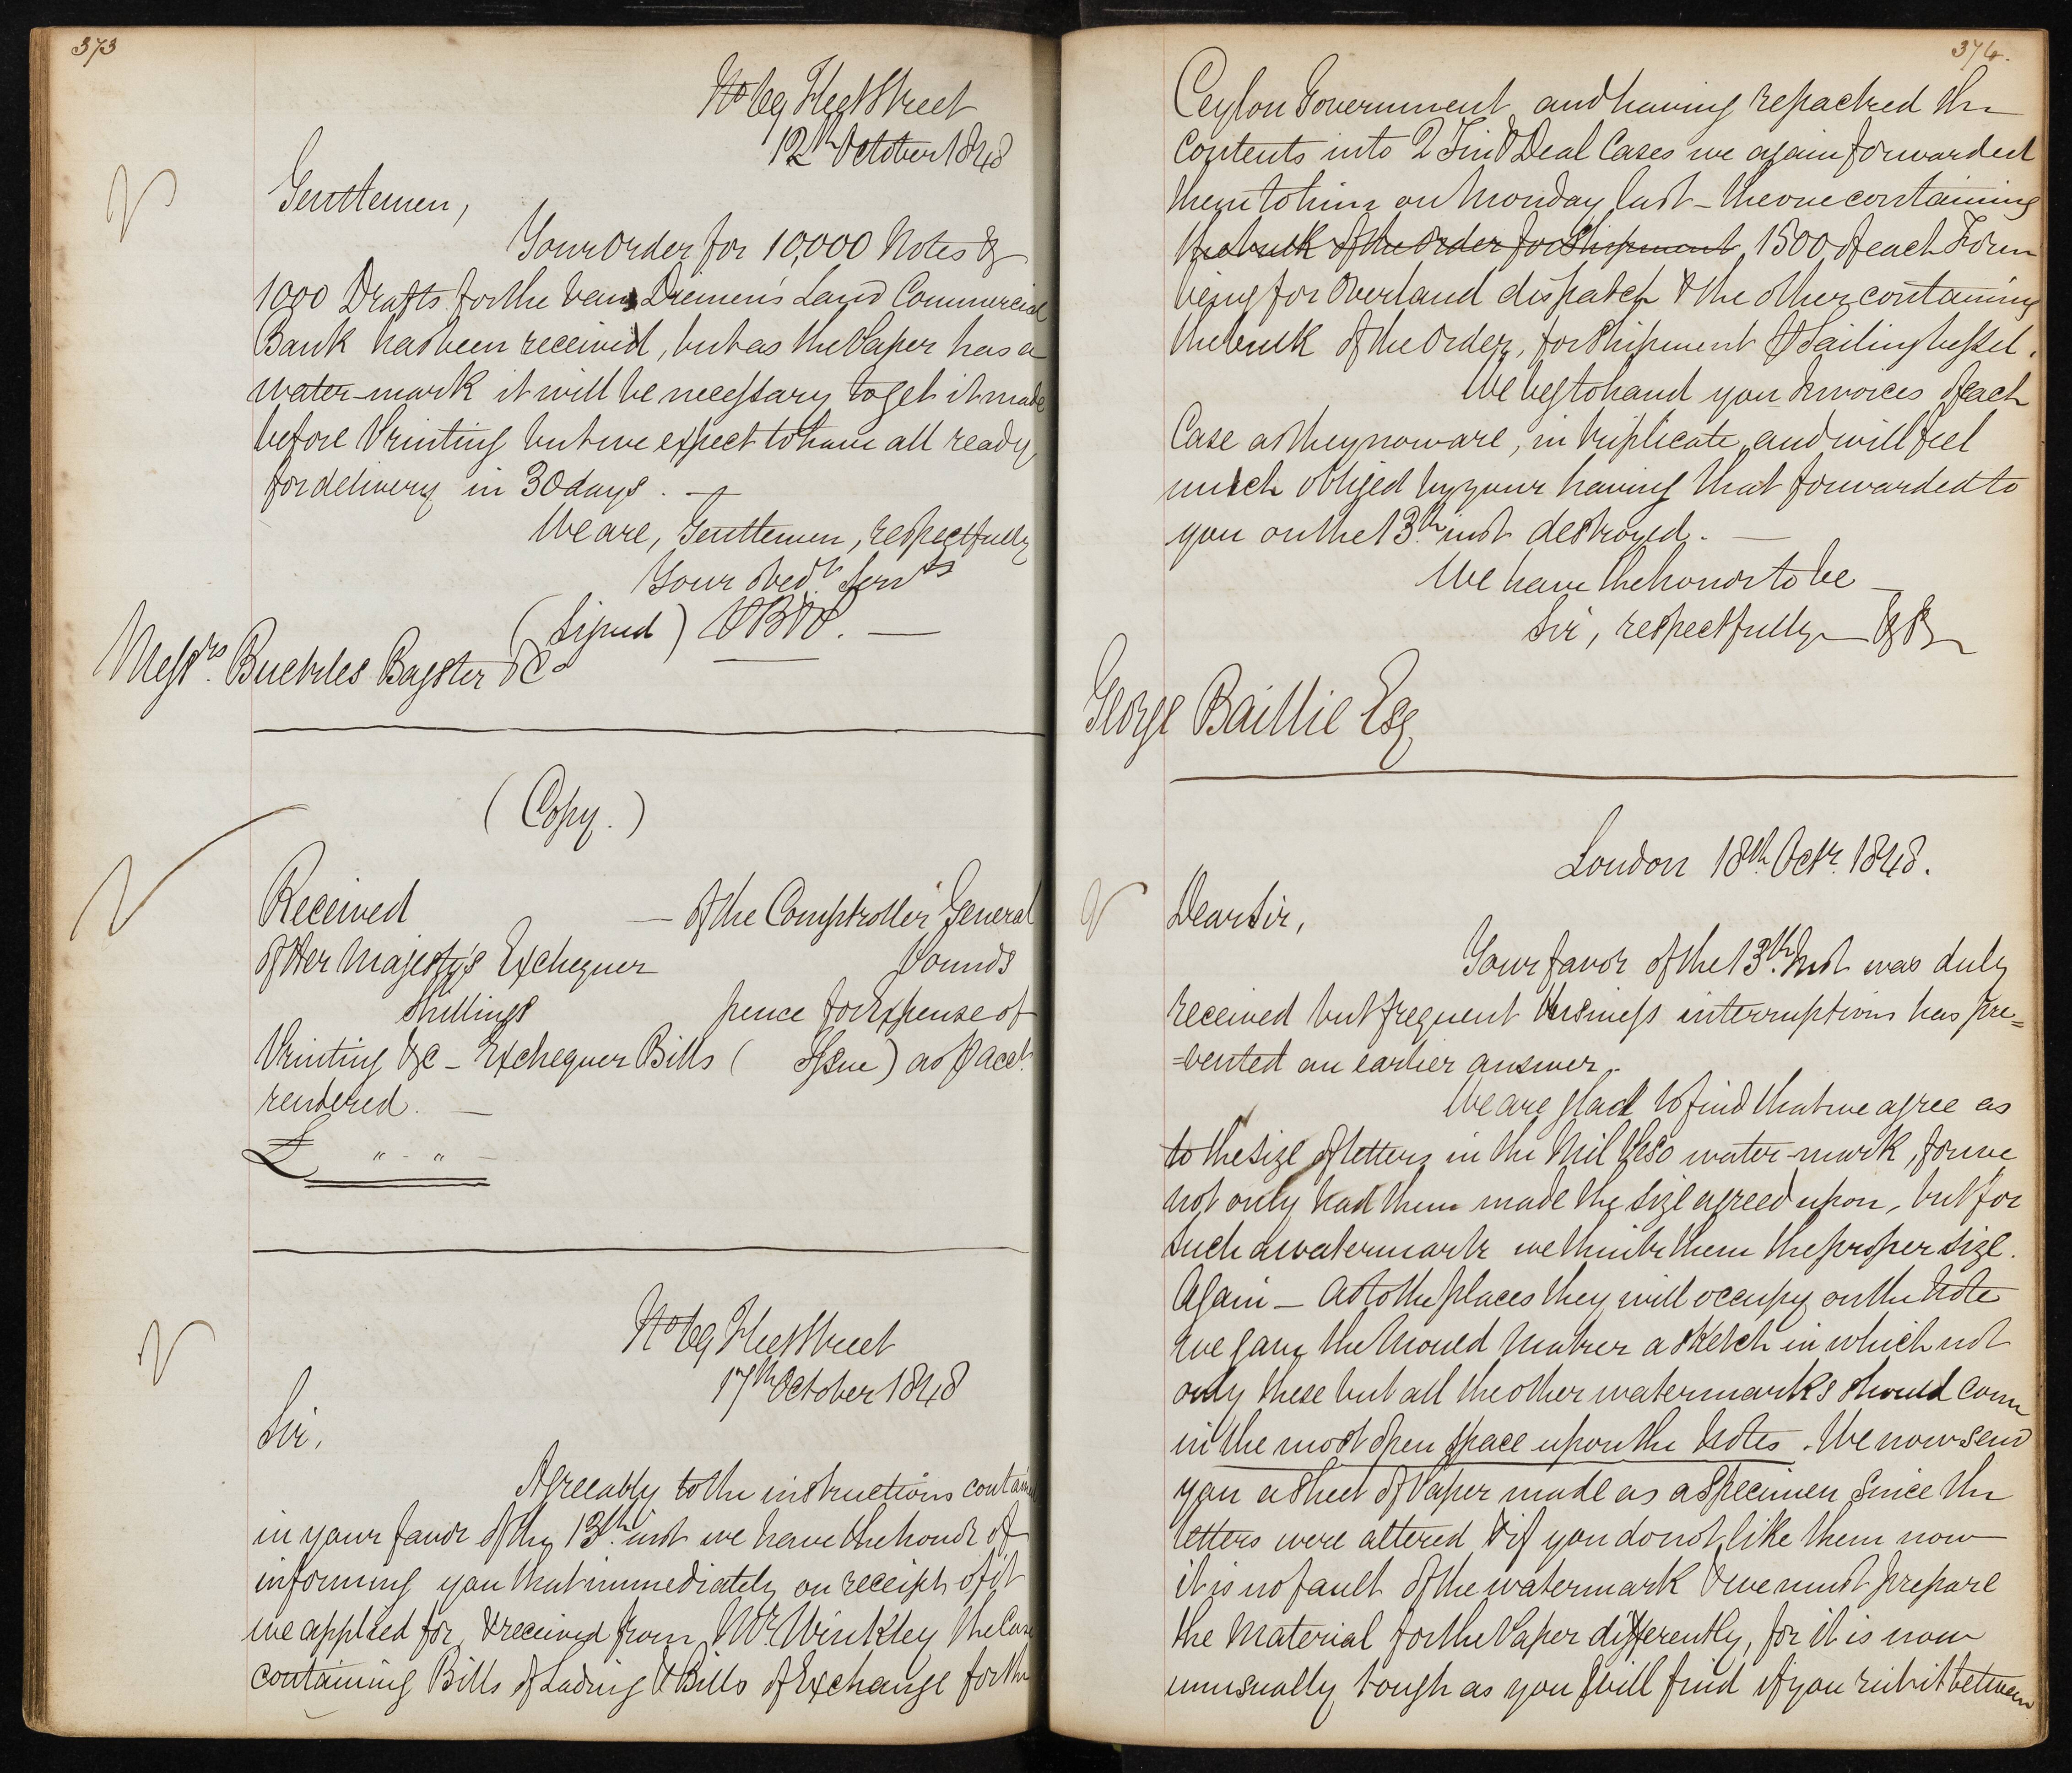 373
No 69 Fleet Street
12th October 1848
Gentlemen,
Your order for 10,000 Notes &
1000 Drafts for the Van Diemen's Land Commercial
Bank has been received, but as the Paper has a
water-mark it will be necessary to get it made
before Printing but we expect to have all ready
for delivery in 30 days. —
We are, Gentlemen, respectfully
Your obedt. Servts
(Signed) PBP. —
Messrs. Buckles Bagster & Co
(Copy.)
Received — of the Comptroller General
of Her Majesty's Exchequer Pounds
Shillings pence for Expense of
Printing &c - Exchequer Bills ( Issue) as p acct.
rendered. —
£ " - " -
No 69 Fleet Street
17th October 1848
Sir,
Agreeably to the instructions contained
in your favor of the 13th. inst we have the honor of
informing you that immediately on receipt of it
we applied for & received from Mr. Winkley the Case
containing Bills of Lading & Bills of Exchange for the
374.
Ceylon Government and having repacked the
contents into 2 Tin & Deal Cases we again forwarded
them to him on Monday last - the one containing
the bulk of the order for Shipment 1500 of each Form
being for Overland dispatch & the other containing
the bulk of the order, for Shipment p Sailing Vessel.
We beg to hand you Invoices of each
Case as they now are, in triplicate and will feel
much obliged by your having that forwarded to
you on the 13th. inst destroyed. —
We have the honor to be —
Sir, respectfully — &c &c
George Baillie Esq
London 18th. Octr. 1848.
Dear Sir,
Your favor of the 13th. Inst was duly
received but frequent business interruptions has pre=
=vented an earlier answer.
We are glad to find that we agree as
to the size of letters in the Mil Reso water-mark, for we
not only had them made the size agreed upon, but for
such a watermark we think them the proper size.
Again - As to the places they will occupy on the Note
we gave the Mould Maker a sketch in which not
only these but all the other watermarks should come
in the most open space upon the Notes. We now send
you a sheet of Paper made as a specimen since the
letters were altered & if you do not like them now
it is no fault of the watermark & we must prepare
the Material for the Paper differently, for it is now
unusually tough as you will find if you rub it between